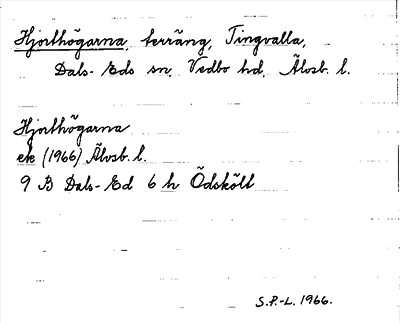 Hjorthögarna, terräng, Tingvalla,
Dals-Eds sn, Vedbo hd, Älvsb. l.
Hjorthögarna
ek (1966) Älvsb. l.
9 B Dals-Ed 6 h Ödskölt
S.P.-L. 1966.